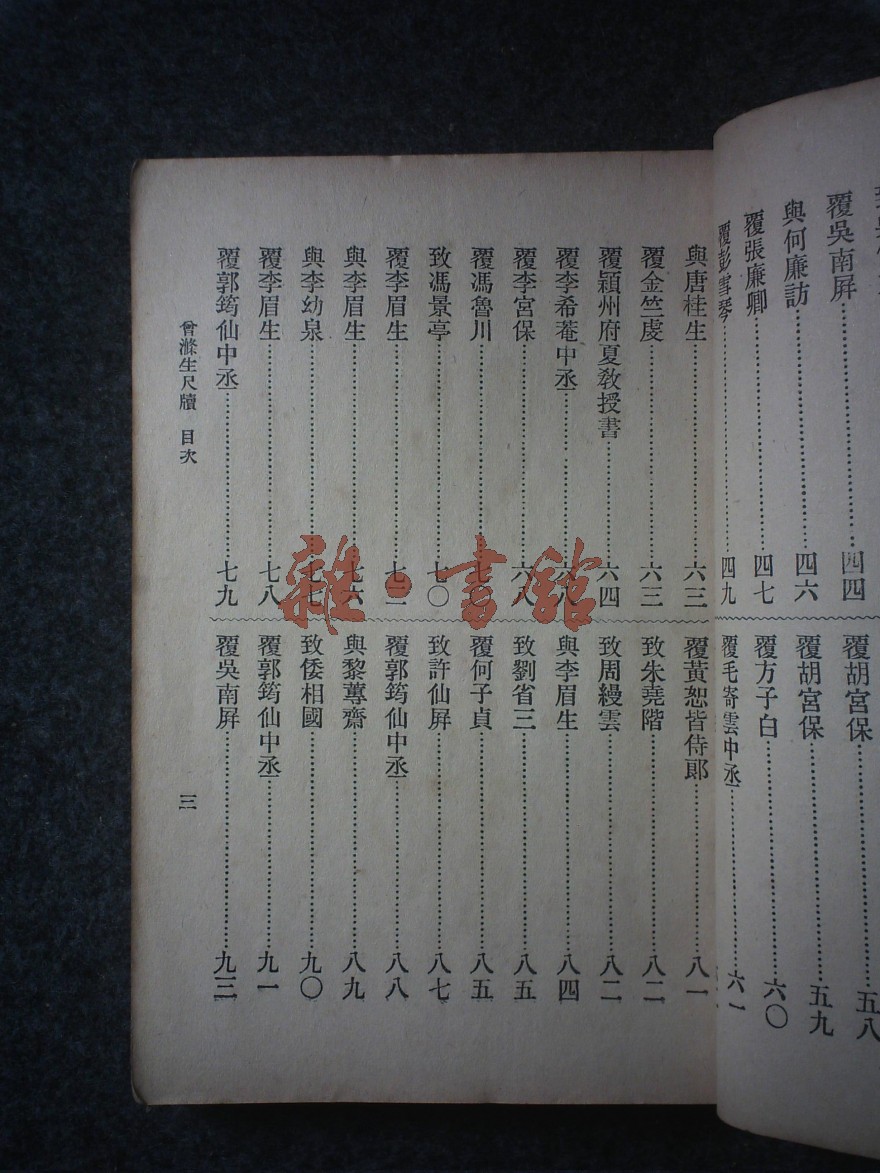 覆吳南屏……四四
與何廉訪……四六
覆張廉卿……四七
覆彭雪琴……四九
覆胡宮保……五八
覆胡宮保……五九
覆方子白……六〇
覆毛寄雲中丞……六一
與唐桂生……六三
覆金竺虔……六三
覆穎州府夏教授書……六四
覆李希菴中丞……六
覆李宮保……六八
覆馮魯川……七
致馮景亭……七〇
覆李眉生……七
與李眉生……七六
與李幼泉……七七
覆李眉生……七八
覆郭筠仙中丞……七九
覆黃恕皆侍郎……八一
致朱堯階……八二
致周縵雲……八二
與李眉生……八四
致劉省三……八五
覆何子貞……八五
致許仙屏……八七
覆郭筠仙中丞……八八
與黎蓴齋……八九
致倭相國……九〇
覆郭筠仙中丞……九一
覆吳南屏……九三
曾滌生尺牘 目次
三
雜·書館